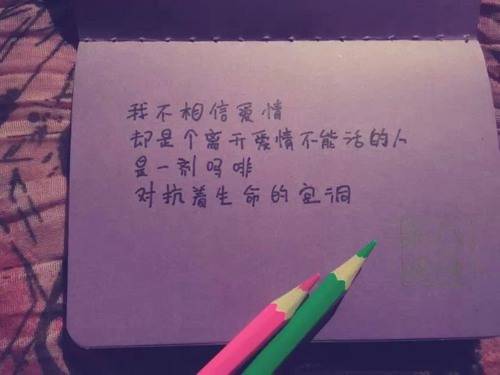 我不相信爱情
却是个离开爱情不能活的人
是一剂吗啡
对抗着生命的空洞